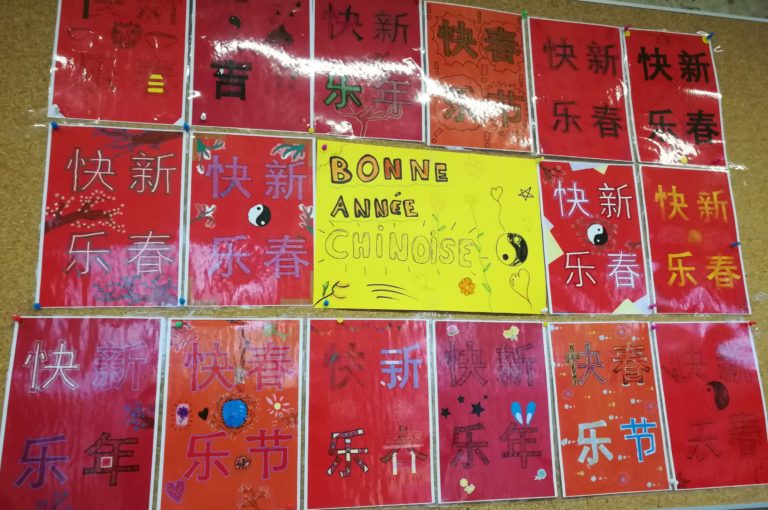 吉
新年
快乐
春节
快乐
新春
快乐
新春
快乐
新春
快乐
新春
快乐
BONNE
ANNÉE
CHINOISE
新春
快乐
新春
快乐
新年
快乐
春节
快乐
新春
快乐
新年
快乐
春节
快乐
新春
快乐